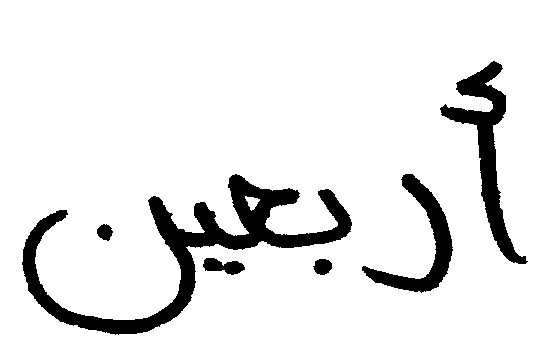 أربعين